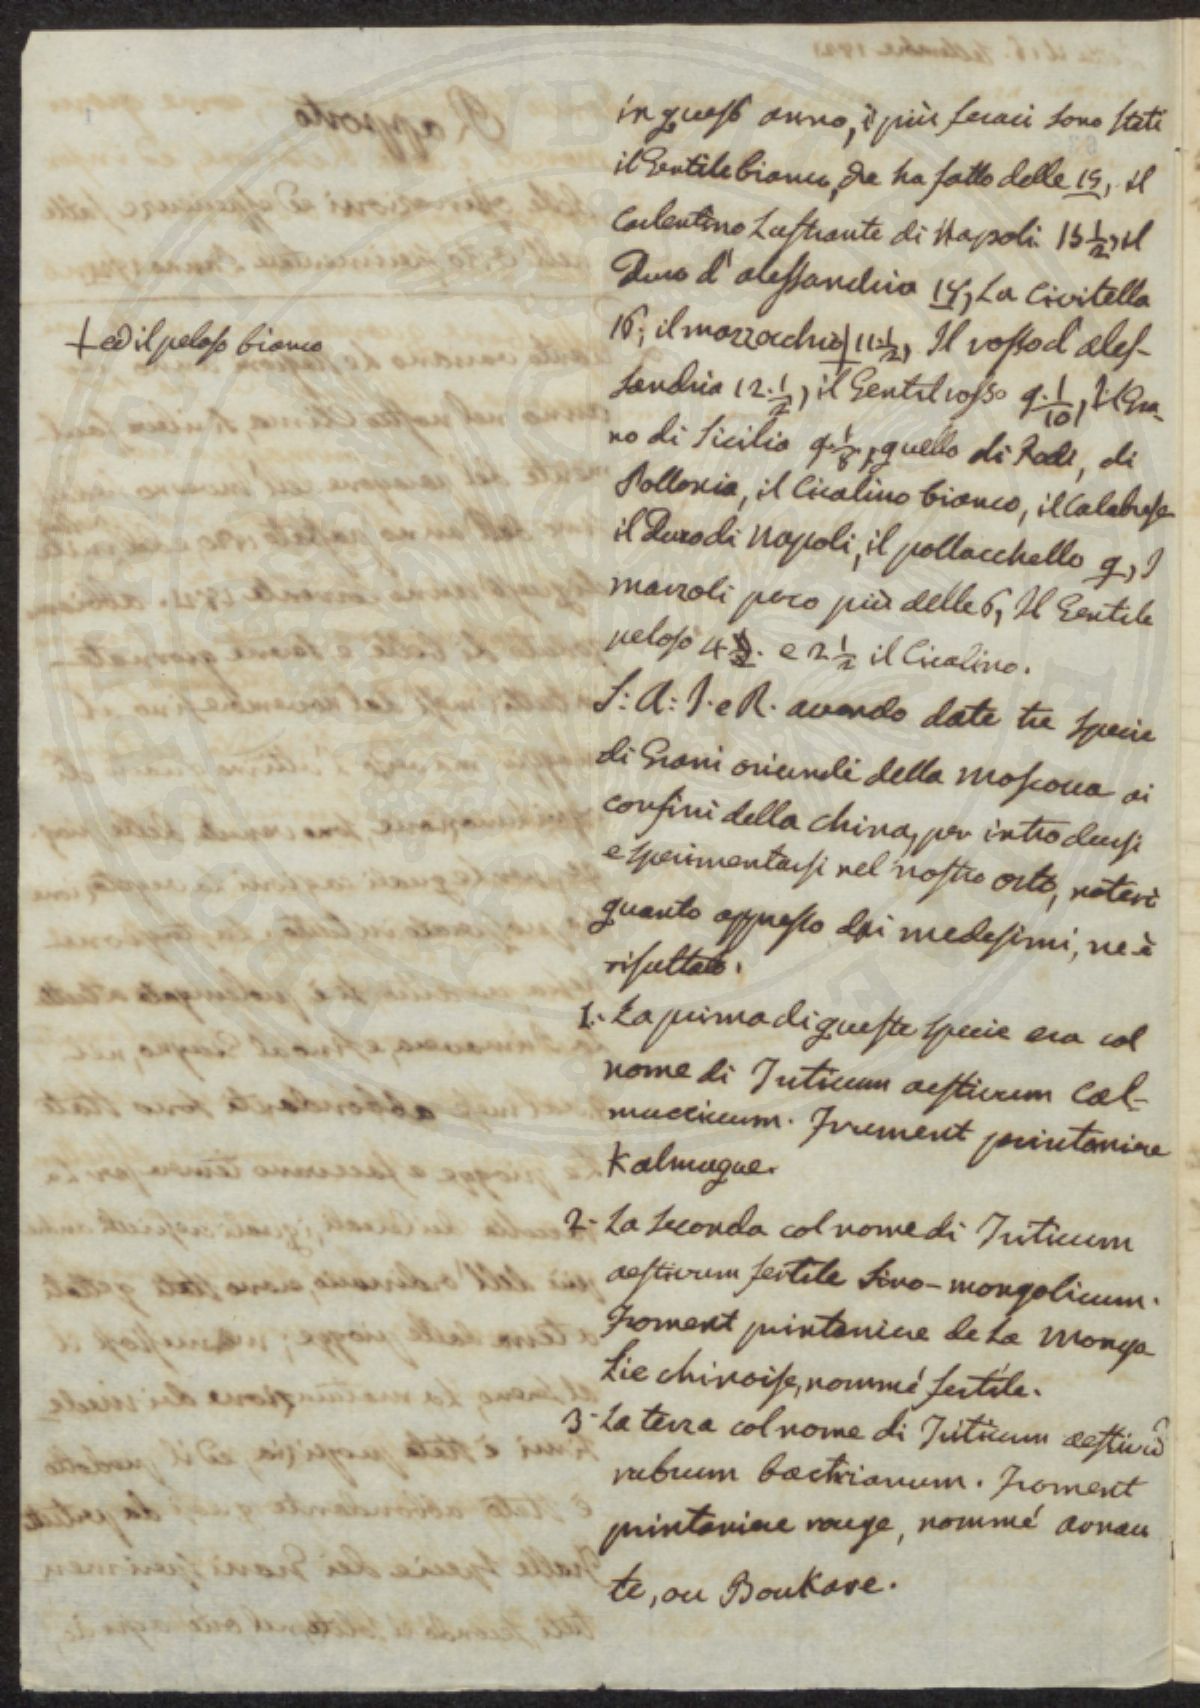 in questo anno, i più feraci sono stati
il Gentile bianco, che ha fatto delle 15, il
Carlentino Lustrante di Napoli 15 1/2, il
Duro d'alessandria 14, La Civitella
16, il mazzocchio + 11 1/2, Il rosso d'ales-
+ ed il peloso bianco
sandria 12. 1/2, il Gentil rosso 9. 1/10, Il Gra-
no di Sicilia 9. 1/8, quello di Rodi, di
Pollonia, il Cicalino bianco, il Calabrese
il Duro di Napoli, il pollacchello 9, I
marzoli poco più delle 6, Il Gentile
peloso 4 e 2 1/2 il Cicalino.
S: A: I. e R. avendo date tre specie
di Grani oriundi della Moscova ai
confini della China, per introdursi
e sperimentarsi nel nostro orto,
quanto appresso dai medesimi, ne è
risultato.
1.- La prima di queste specie era col
nome di Triticum aestivum Cal-
muccicum. Frument printaniere
Kalmugue.
2- La Seconda col nome di Triticum
aestivum fertile Sino-mongolicum.
Froment printaniere de La Monga
lie chinoise, nommé fertile.
3- La terza col nome di Triticum aestivũ
rubrum bactrianum. Froment
printaniere rouge, nommé arnau
te, ou Boukare.